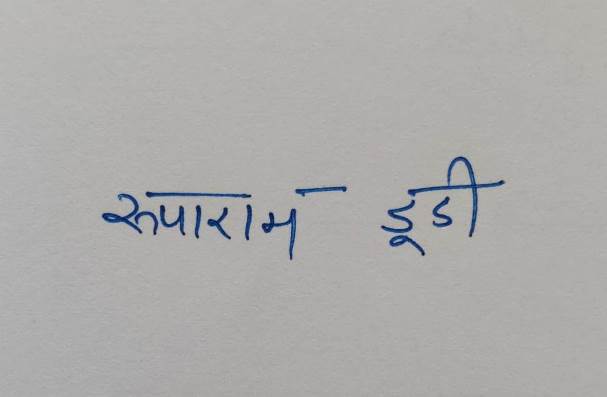 रुपाराम डूडी